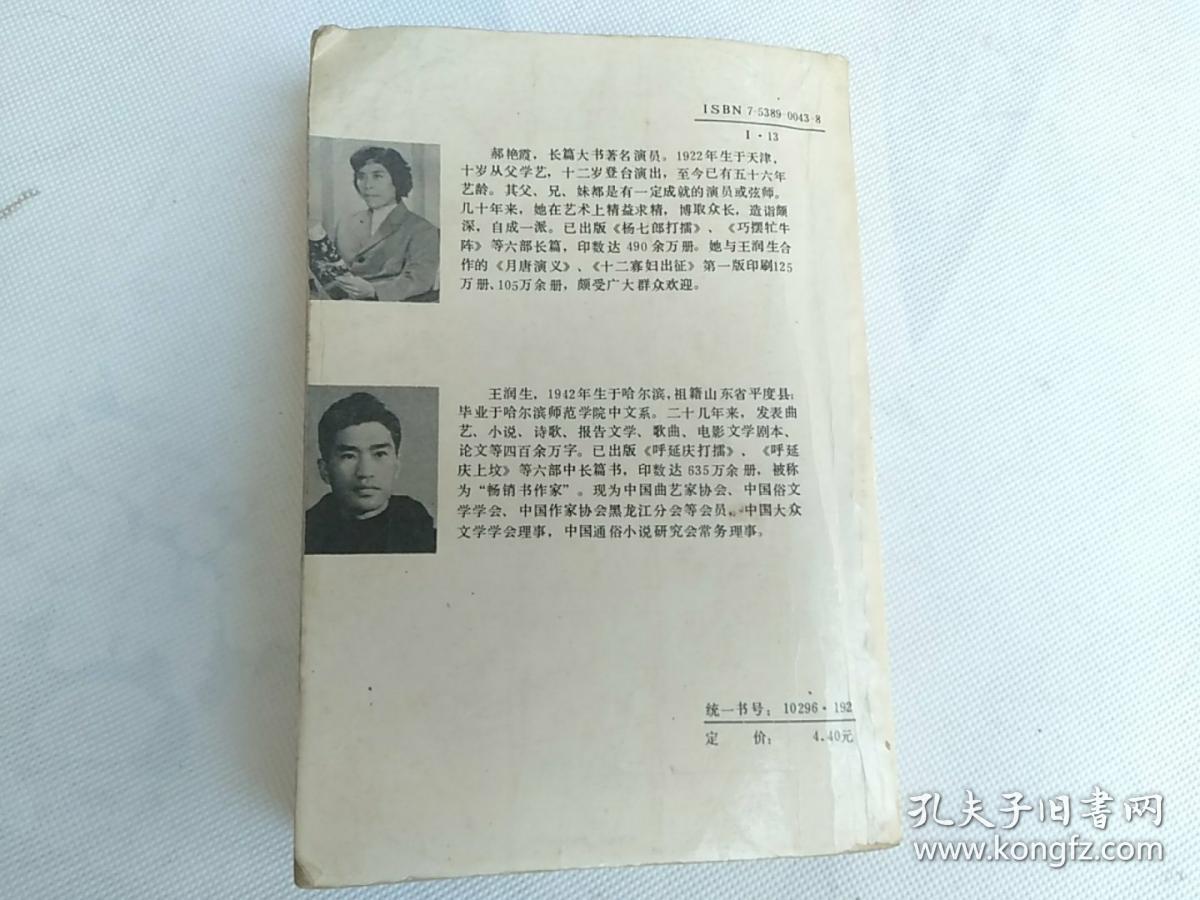 ISBN 7-5389-0043-8
I·13
郝艳霞，长篇大书著名演员。1922年生于天津，
十岁从父学艺，十二岁登台演出，至今已有五十六年
艺龄。其父、兄、妹都是有一定成就的演员或弦师。
几十年来，她在艺术上精益求精，博取众长，造诣颇
深，自成一派。已出版《杨七郎打擂》、《巧摆牤牛
阵》等六部长篇，印数达 490 余万册。她与王润生合
作的《月唐演义》、《十二寡妇出征》第一版印刷125
万册、105万余册，颇受广大群众欢迎。
王润生，1942年生于哈尔滨，祖籍山东省平度县；
毕业于哈尔滨师范学院中文系。二十几年来，发表曲
艺、小说、诗歌、报告文学、歌曲、电影文学剧本、
论文等四百余万字。已出版《呼延庆打擂》、《呼延
庆上坟》等六部中长篇书，印数达 635万余册，被称
为“畅销书作家”。现为中国曲艺家协会、中国俗文
学学会、中国作家协会黑龙江分会等会员，中国大众
文学学会理事，中国通俗小说研究会常务理事。
统一书号：10296·192
定 价：4.40元
孔夫子旧书网
www.kongfz.com